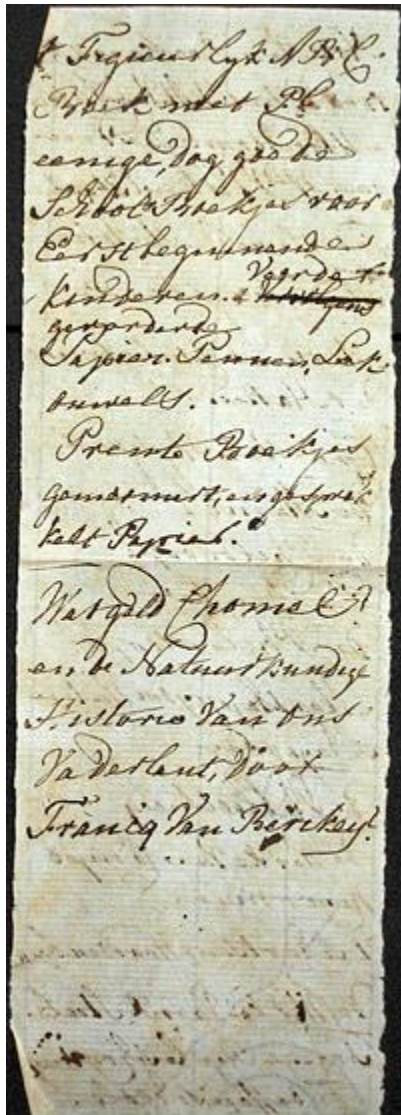 Boek met Pl
eenige, dog goede
School Boekjes voor
Eerstbeginnende
Kinderen. & Verder
gevorderde
Papier. Pennen, Lak
ouwels.
Prente Boekjes
gemarmert, en gesprek
kelt Papier.
Wat geld Chomel?
en de Natuurkundige
Historie Van ons
Vaderlant, door
Francq Van Berckey?